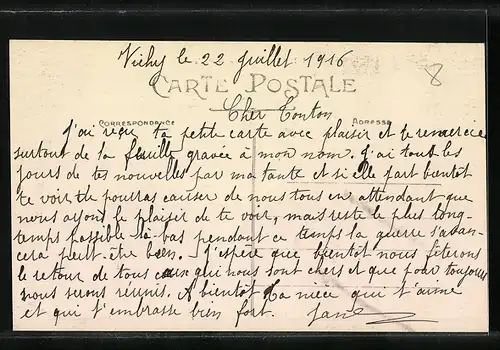 Vichy le 22 juillet 1916
8
CARTE POSTALE
Cher Tonton
CORRESPONDANCE
ADRESSE
J'ai reçu ta petite carte avec plaisir et te remercie
surtout de la feuille gravée à mon nom. J'ai tous les
jours de tes nouvelles par ma tante et si elle part bientôt
te voir tu pourras causer de nous tous en attendant que
nous ayons le plaisir de te voir, mais reste le plus long-
temps possible là-bas pendant ce temps la guerre s'avan-
cera peut être bien. J'espère que bientôt nous fêterons
le retour de tous ceux qui nous sont chers et que pour toujours
nous serons réunis. A bientôt Ta nièce qui t'aime
et qui t'embrasse bien fort. Jane